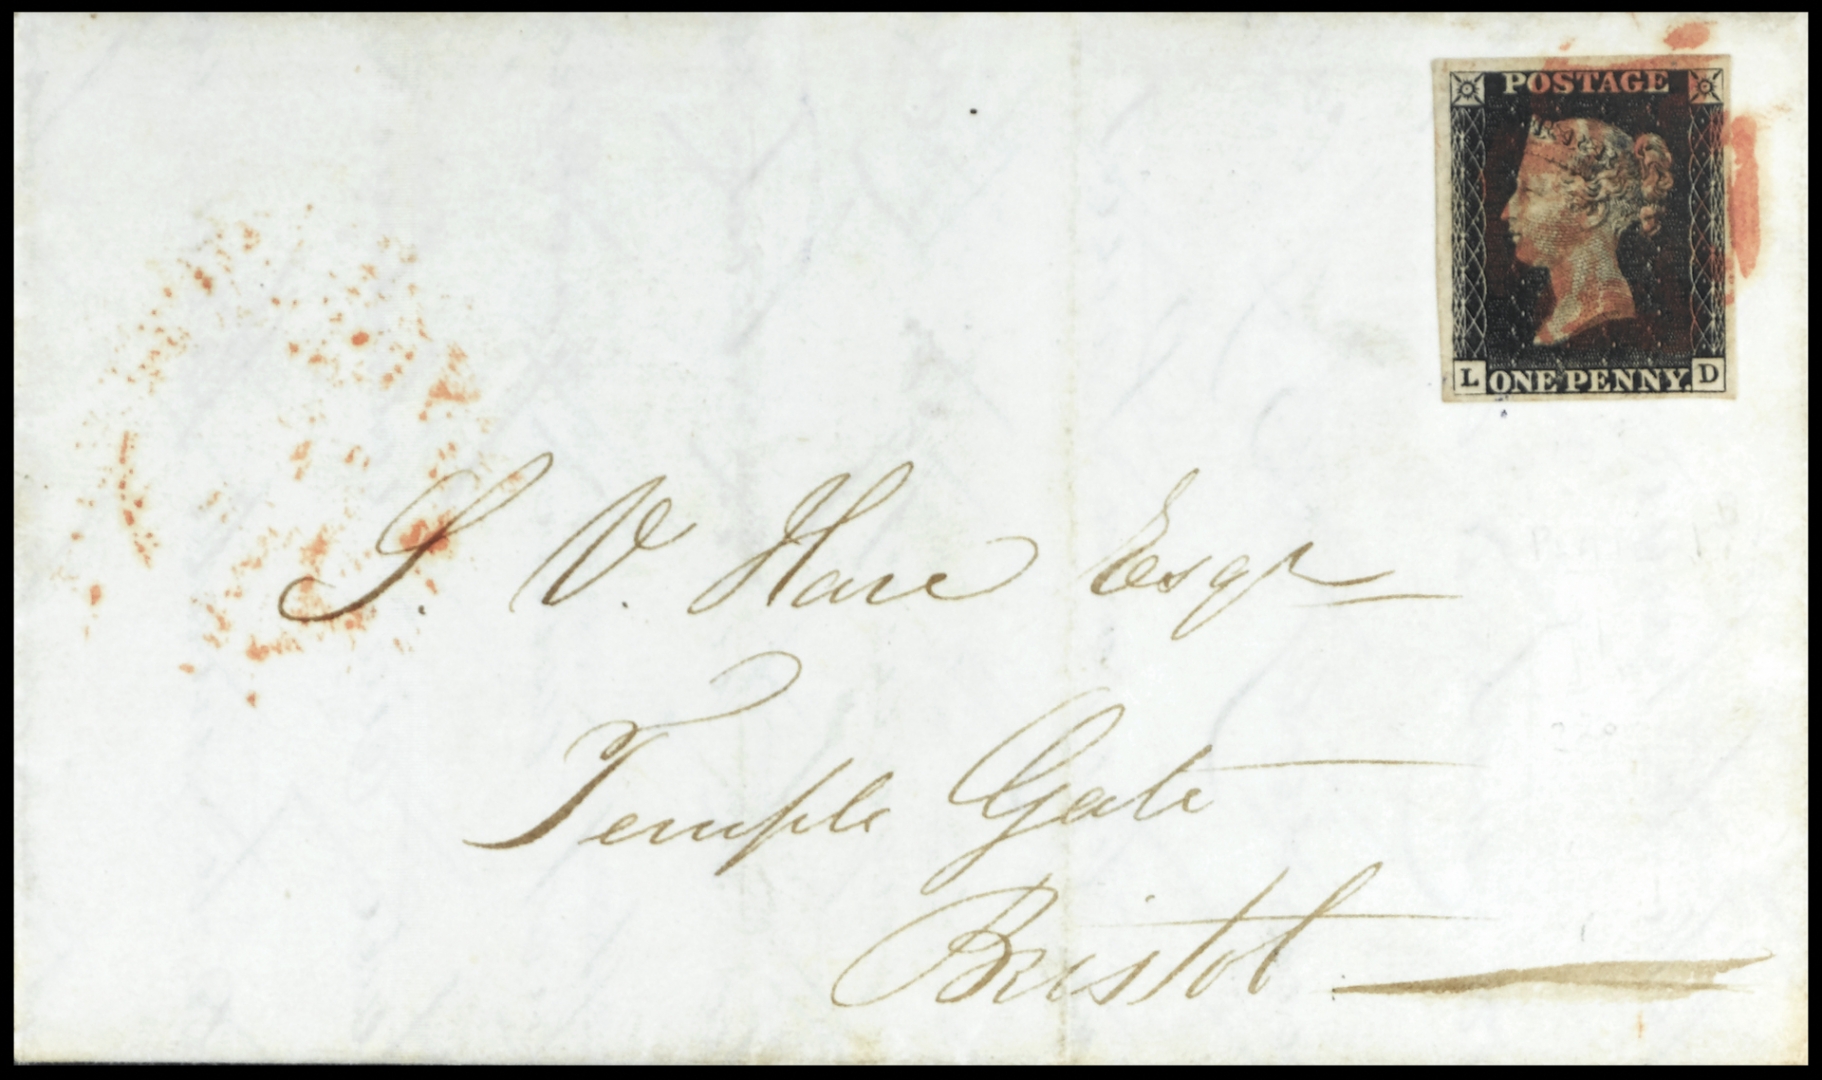 POSTAGE
L ONE PENNY. D
S. V. Hare Esqr
Temple Gate
Bristol